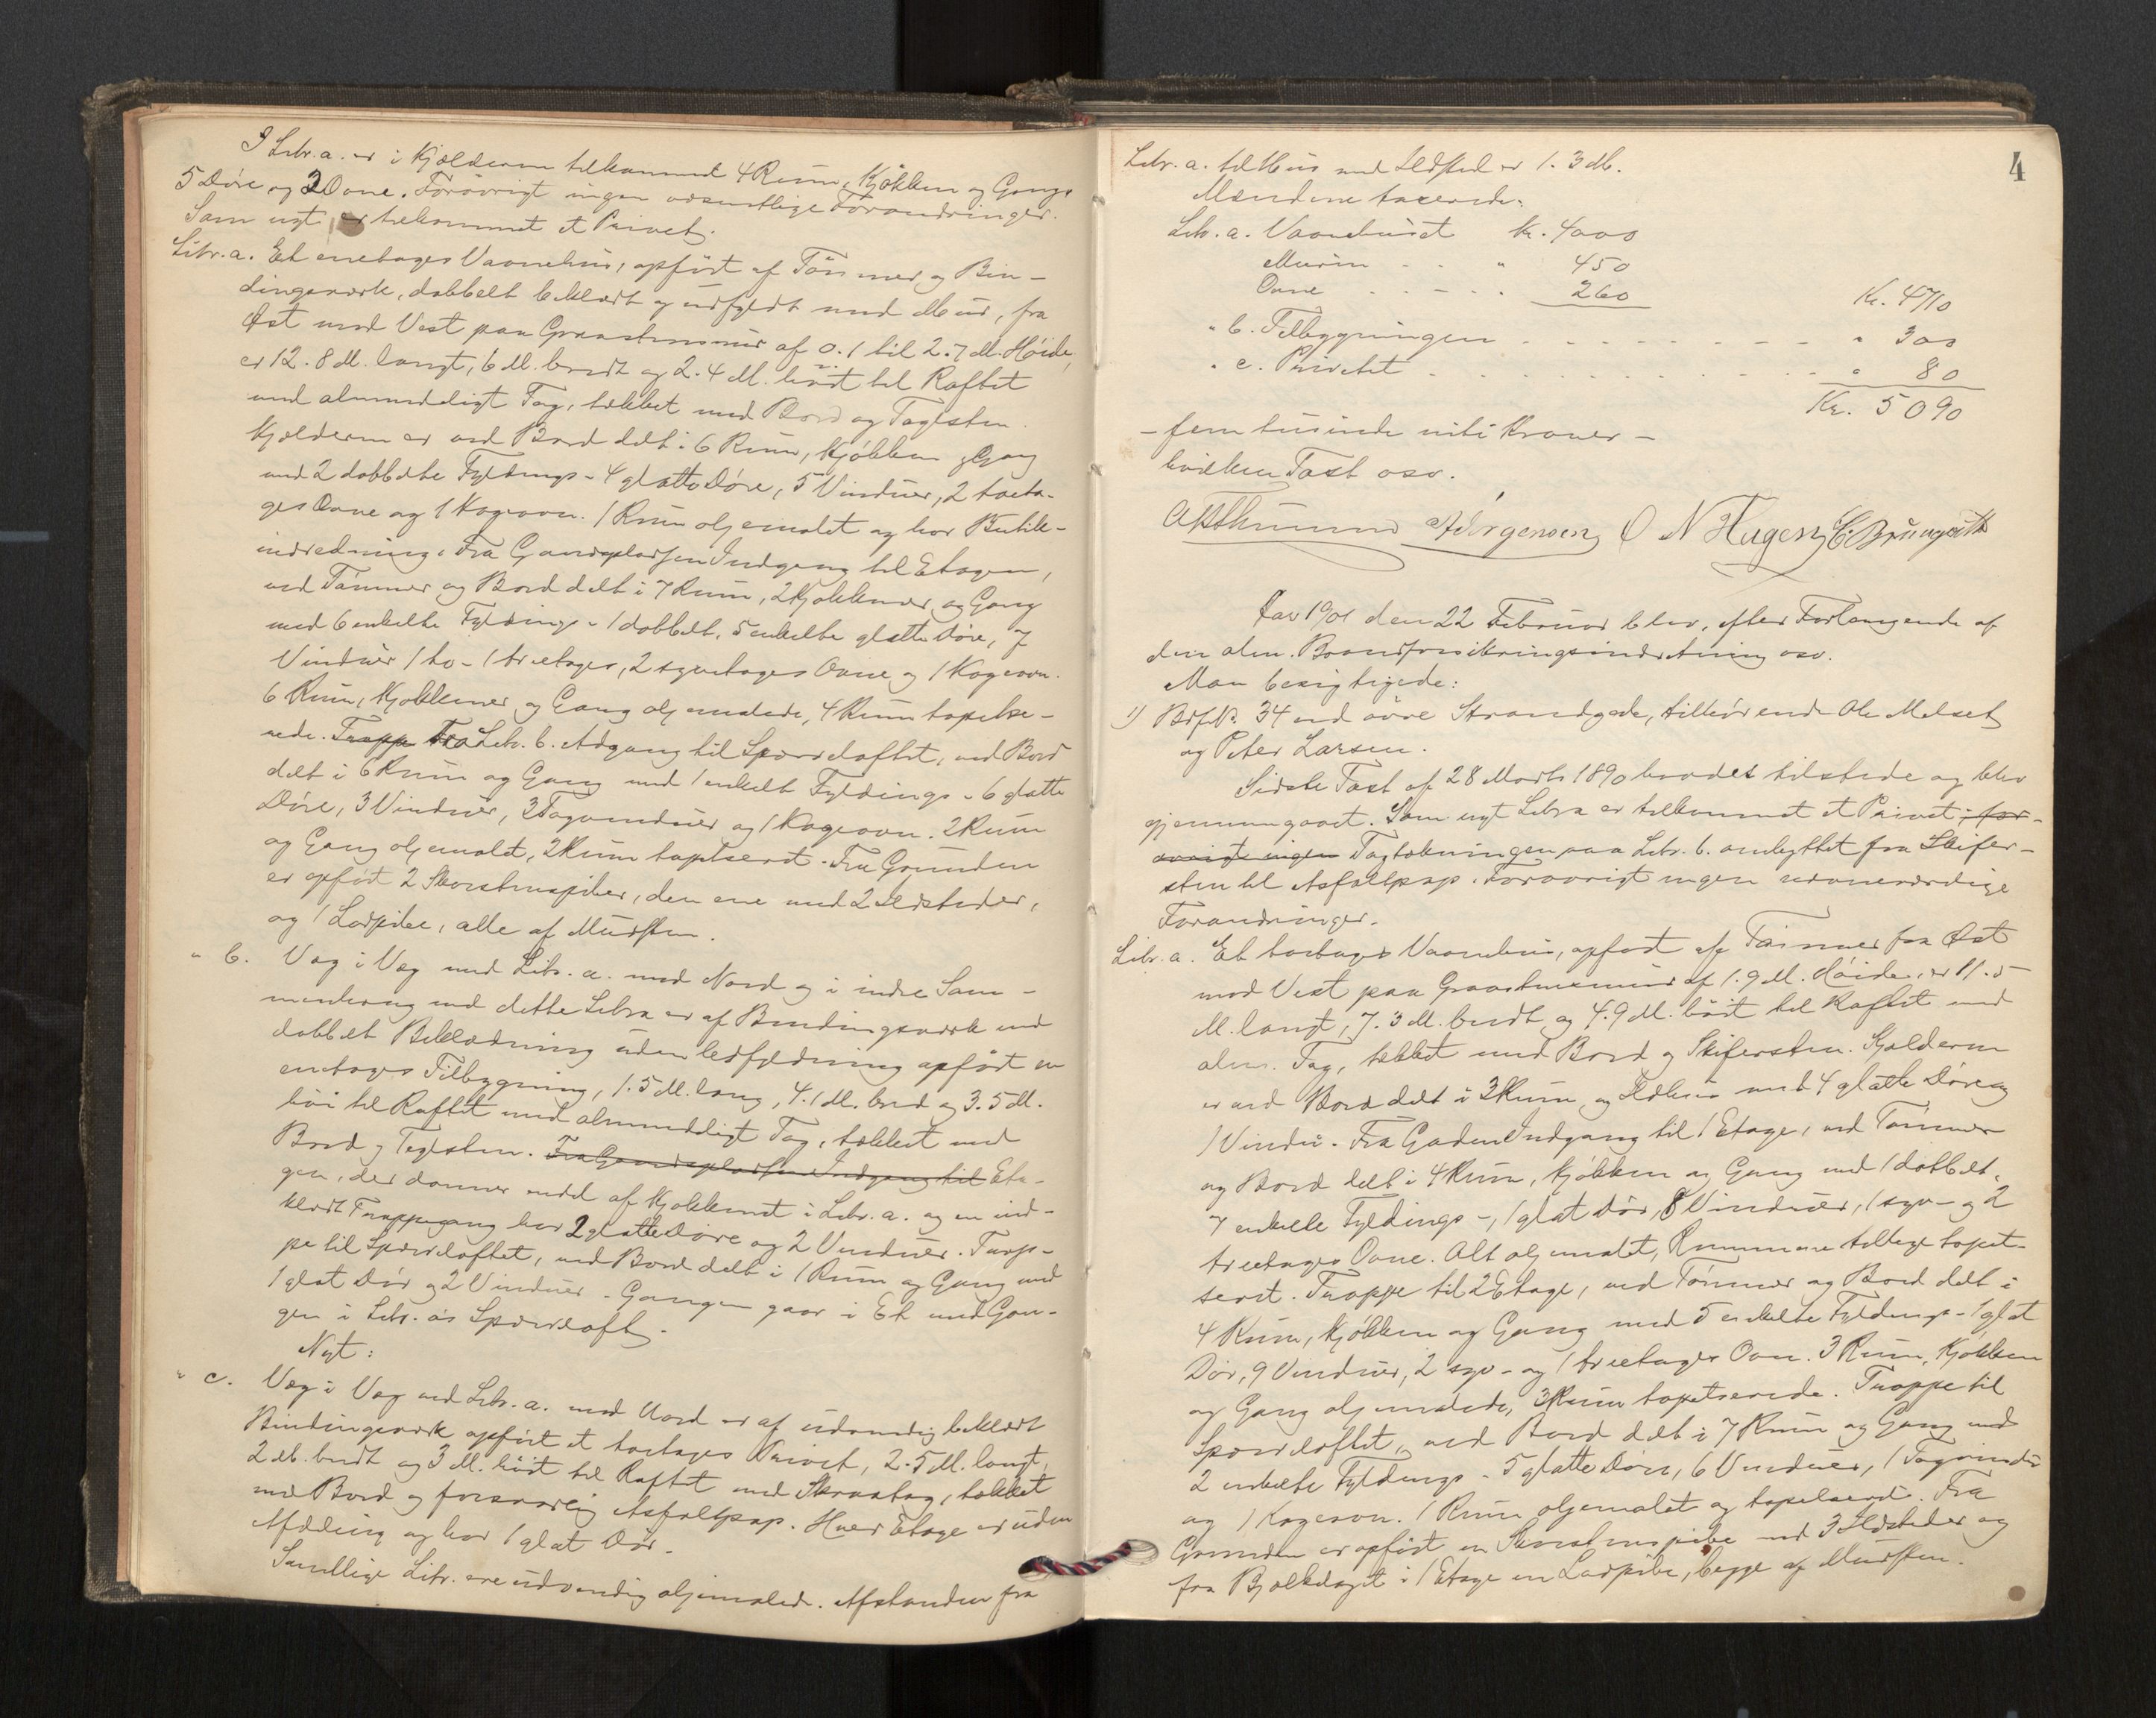 I Litr. a. er i Kjælderen tilkommet 4 Rum, Kjøkken og Gang,
5 Døre og 3 Ovne. Forøvrigt ingen væsentlige Forandringer.
Som nyt er tilkommet et Privet.
Litr. a. Et enetages Vaanehus, opført af Tømmer og Bin-
dingsværk, dobbelt beklædt og udfyldt med Mur, fra
Øst mod Vest paa Graastensmur af 0.1 til 2.7 M. Høide,
er 12.8 M. langt, 6 M. bredt og 2.4 M. høit til Raftet
med almindeligt Tag, tækket med Bord og Taglsten.
Kjælderen er ved Bord delt i 6 Rum, Kjøkken og Gang
med 2 dobbelte Fyldings- 4 glatte Døre, 5 Vinduer, 2 toeta-
ges Ovne og 1 Kogeovn. 1 Rum oljemalet og har Butik-
indredning. Fra Gaardspladsen Indgang til Etagen,
ved Tømmer og Bord delt i 7 Rum, 2 Kjøkkener og Gang
med 6 enkelte Fyldings- 1 dobbelt, 5 enkelte glatte Døre, 7
Vinduer 1 to- 1 treetages, 2 syvetages Ovne og 1 Kogeovn.
6 Rum, Kjøkkener og Gang oljemalede, 4 Rum tapetse-
rede. Trappe Fra Litr. b. Adgang til Spærreloftet, ved Bord
delt i 6 Rum og Gang med 1 enkelt Fyldings- 6 glatte
Døre, 3 Vinduer, 3 Tagvinduer og 1 Kogeovn. 2 Rum
og Gang oljemalet, 2 Rum tapetseret. Fra Grunden
er opført 2 Skorstenspiber, den ene med 2 Ildsteder,
og 1 Ladpibe, alle af Mursten.
" b. Væg i Væg med Litr. a. mod Nord og i indre Sam-
menhæng med dette Litra er af Bindingsværk med
dobbelt Beklædning uden Udfyldning opført en
enetages Tilbygning, 1.5 M. lang, 4.1 M. bred og 3.5 M.
høi til Raftet med almindeligt Tag, tækket med
Bord og Teglsten. Fra Gaardspladsen Indgang til Eta-
gen, der danner endel af Kjøkkenet i Litr. a. og en ind-
klædt Trappegang har 2 glatte Døre og 2 Vinduer. Trap-
pe til Spærreloftet, ved Bord delt i 1 Rum og Gang med
1 glat Dør og 2 Vinduer. Gangen gaar i Et med Gan-
gen i Litr. a's Spærreloft.
Nyt:
" c. Væg i Væg ved Litr. a. mod Nord er af udvendig beklædt
Bindingsværk opført et toetages Privet, 2.5 M. langt,
2 M. bredt og 3 M. høit til Raftet med Skraatag, tækket
med Bord og forsvarlig Asfaltpap. Hver Etage er uden
Afdeling og har 1 glat Dør.
Samtlige Litr. ere udvendig oljemalede. Afstanden fra
4
Litr. a. til Hus med Ildsted er 1.3 M.
Mændene taxerede:
Litr. a. Vaanehuset Kr. 4000
Muren " 450
Ovne 260 Kr. 4710
" b. Tilbygningen " 300
" c. Privetet " 80
Kr. 5090
- fem tusinde niti Kroner -
hvilken Taxt osv.
A Jørgensen O N Hagen
Aar 1901 den 22 Februar blev, efter Forlangende af
den alm. Brandforsikringsindretning osv.
Man besigtigede:
1) Bdf.N. 34 ved øvre Strandgade, tilhørende Ole Melset
og Peter Larsen.
Sidste Taxt af 28 Marts 1890 havdes tilstede og blev
gjennemgaaet. Som nyt Litra er tilkommet et Privet, for-
øvrigt ingen Tagtækningen paa Litr. b. ombyttet fra Skifer-
sten til Asfaltpap. Forøvrigt ingen nævneværdige
Forandringer.
Litr. a. Et toetages Vaanehus, opført af Tømmer fra Øst
mod Vest paa Graastensmur af 1.9 M. Høide, er 11.5
M. langt, 7.3 M. bredt og 4.9 M. høit til Raftet med
alm. Tag, tækket med Bord og Skifersten. Kjælderen
er ved Bord delt i 3 Rum og Ildhus med 4 glatte Døre og
1 Vindu. Fra Gaden Indgang til 1 Etage, ved Tømmer
og Bord delt i 4 Rum, Kjøkken og Gang med 1 dobbelt,
7 enkelte Fyldings-, 1 glat Dør, 8 Vinduer, 1 syv- og 2
treetages Ovne. Alt oljemalet, Rummene tillige tapet-
seret. Trappe til 2 Etage, ved Tømmer og Bord delt i
4 Rum, Kjøkken og Gang med 5 enkelte Fyldings- 1 glat
Dør, 9 Vinduer, 2 syv- og 1 treetages Ovn. 3 Rum, Kjøkken
og Gang oljemalede, 3 Rum tapetserede. Trappe til
Spærreloftet, ved Bord delt i 7 Rum og Gang med
2 enkelte Fyldings- 5 glatte Døre, 6 Vinduer, 1 Tagvindu
og 1 Kogeovn. 1 Rum oljemalet og tapetseret. Fra
Grunden er opført en Skorstenspibe med 3 Ildsteder og
fra Bjælkelaget i 1 Etage en Ladpibe, begge af Mursten.